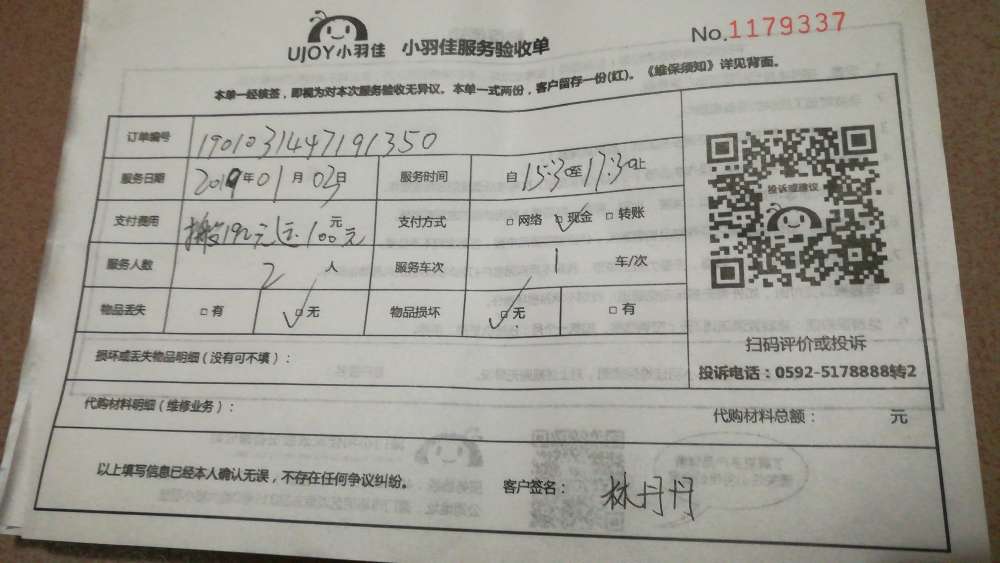 UJOY小羽佳 小羽佳服务验收单 No.1179337
本单一经核签，即视为对本次服务验收无异议。本单一式两份，客户留存一份(红)。《维保须知》详见背面。
订单编号 1901031447191350
服务日期 2019年01月03日 服务时间 自15:30至17:30止
支付费用 搬192元 100元 元 支付方式 □网络 □现金 □转账
服务人数 2人 服务车次 1 车/次
物品丢失 □有 □无 物品损坏 □无 □有
投诉或建议
扫码评价或投诉
投诉电话：0592-5178888转2
损坏或丢失物品明细（没有可不填）：
代购材料明细（维修业务）： 代购材料总额： 元
以上填写信息已经本人确认无误，不存在任何争议纠纷。 客户签名： 林丹丹